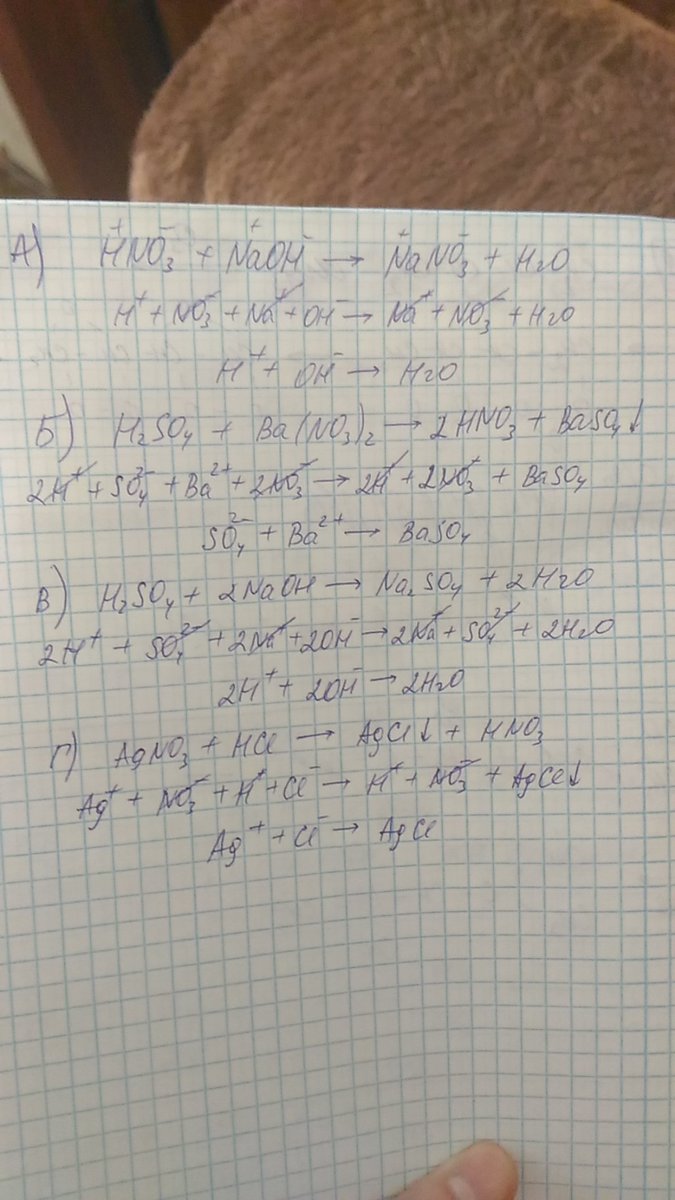 А) H⁺NO₃⁻ + Na⁺OH⁻ → Na⁺NO₃⁻ + H₂O
H⁺ + NO₃⁻ + Na⁺ + OH⁻ → Na⁺ + NO₃⁻ + H₂O
H⁺ + OH⁻ → H₂O
Б) H₂SO₄ + Ba(NO₃)₂ → 2HNO₃ + BaSO₄↓
2H⁺ + SO₄²⁻ + Ba²⁺ + 2NO₃⁻ → 2H⁺ + 2NO₃⁺ + BaSO₄
SO₄²⁻ + Ba²⁺ → BaSO₄
В) H₂SO₄ + 2NaOH → Na₂SO₄ + 2H₂O
2H⁺ + SO₄²⁻ + 2Na⁺ + 2OH⁻ → 2Na⁺ + SO₄²⁻ + 2H₂O
2H⁺ + 2OH⁻ → 2H₂O
Г) AgNO₃ + HCl → AgCl↓ + HNO₃
Ag⁺ + NO₃⁻ + H⁺ + Cl⁻ → H⁺ + NO₃⁻ + AgCl↓
Ag⁺ + Cl⁻ → AgCl